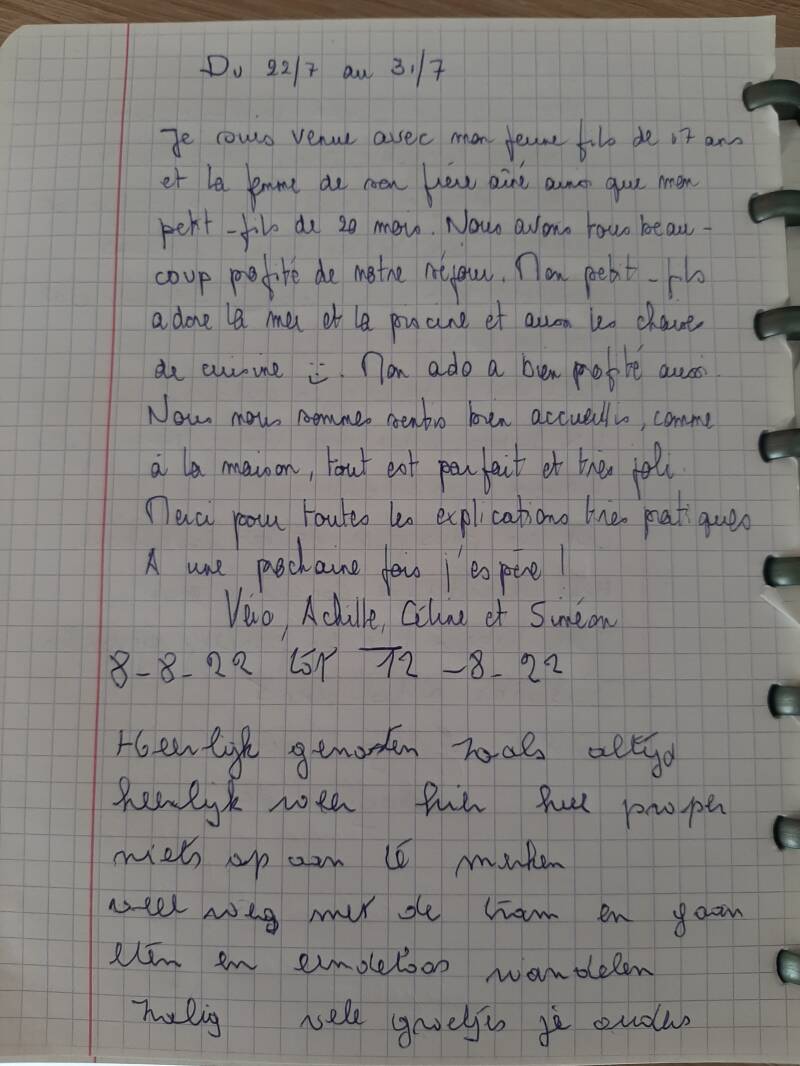 Du 22/7 au 31/7
Je suis venue avec mon jeune fils de 17 ans
et la femme de son frère aîné ainsi que mon
petit-fils de 20 mois. Nous avons tous beau-
coup profité de notre séjour. Mon petit-fils
adore la mer et la piscine et aussi les chaises
de cuisine :). Mon ado a bien profité aussi.
Nous nous sommes sentis bien accueillis, comme
à la maison, tout est parfait et très joli.
Merci pour toutes les explications très pratiques
A une prochaine fois j'espère !
Véro, Achille, Céline et Siméon
8-8-22 tot 12-8-22
Heerlijk genoten zoals altijd
heerlijk weer hier heel proper
niets op aan te merken
veel weg met de tram en gaan
eten en eindeloos wandelen
Zalig vele groetjes je ouders